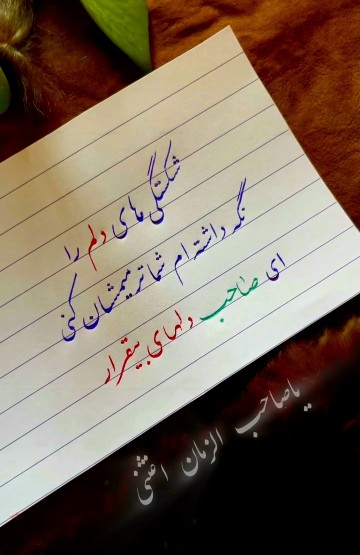 شکستگی های دلم را
نگه داشته ام شما ترمیمشان کنی
ای صاحب دلهای بیقرار
یا صاحب الزمان اغثنی